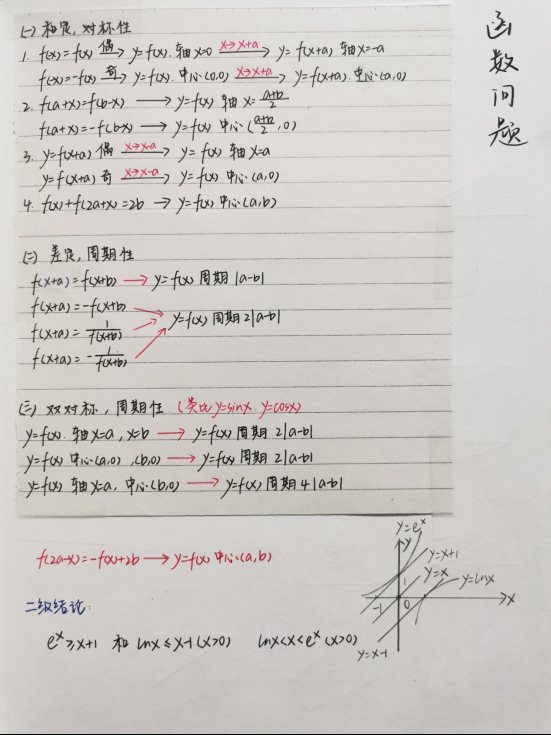 函数问题
(一) 和定,对称性
1. f(x)=f(x) 偶→ y=f(x). 轴x=0 x→x+a→ y=f(x+a) 轴x=-a
f(-x)=-f(x) 奇→ y=f(x). 中心(0,0) x→x+a→ y=f(x+a). 中心(a,0)
2. f(a+x)=f(b-x) → y=f(x) 轴 x=(a+b)/2
f(a+x)=-f(b-x) → y=f(x) 中心((a+b)/2,0)
3. y=f(x+a) 偶 x→x-a→ y=f(x) 轴x=a
y=f(x+a) 奇 x→x-a→ y=f(x) 中心(a,0)
4. f(x)+f(2a+x)=2b → y=f(x) 中心(a,b)
(二) 差定,周期性
f(x+a)=f(x+b) → y=f(x) 周期 |a-b|
f(x+a)=-f(x+b)
f(x+a)=1/f(x+b) → y=f(x) 周期2|a-b|
f(x+a)=-1/f(x+b)
(三) 双对称,周期性 (类比y=sinx. y=cosx)
y=f(x). 轴x=a,x=b → y=f(x) 周期 2|a-b|
y=f(x) 中心(a,0),(b,0) → y=f(x) 周期 2|a-b|
y=f(x) 轴x=a,中心(b,0) → y=f(x) 周期4|a-b|
f(2a-x)=-f(x)+2b → y=f(x) 中心(a,b)
二级结论:
e^x≥x+1 和 lnx≤x-1(x>0) lnx<x<e^x (x>0)
y=e^x
y
y=x+1
y=x
y=lnx
1
-1 0 x
y=x-1